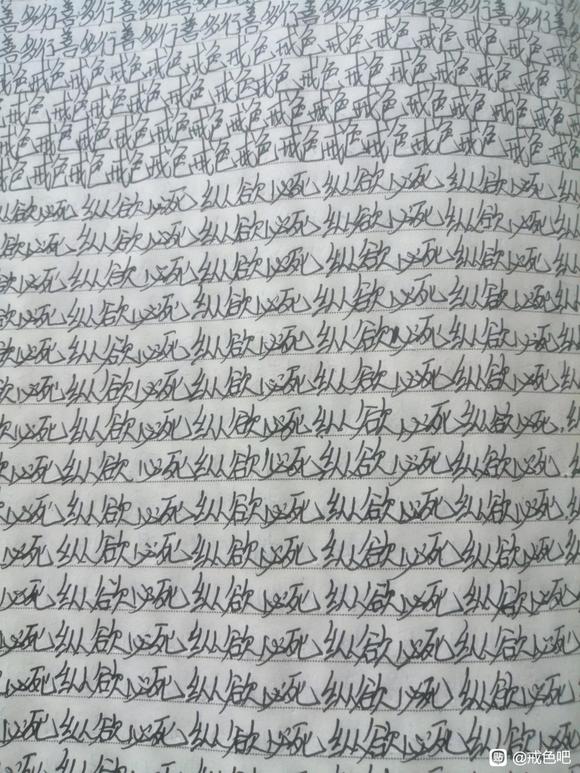 善多行善多行善多行善多行善多行
善多行善多行善多行善多行善多行
戒色戒色戒色戒色戒色戒色戒色戒色戒色
色戒色戒色戒色戒色戒色戒色戒色戒色戒色
色戒色戒色戒色戒色戒色戒色戒色戒色戒色
色戒色戒色戒色戒色戒色戒色戒色戒色戒色
色戒色戒色戒色戒色戒色戒色戒色戒色戒色
欲必死纵欲必死纵欲必死纵欲必死纵欲必死纵
欲必死纵欲必死纵欲必死纵欲必死纵欲必死纵
欲必死纵欲必死纵欲必死纵欲必死纵欲必死纵
欲必死纵欲必死纵欲必死纵欲必死纵欲必死纵
欲必死纵欲必死纵欲必死纵欲必死纵欲必死纵
欲必死纵欲必死纵欲必死纵欲必死纵欲必死纵
欲必死纵欲必死纵欲必死纵欲必死纵欲必死纵
欲必死纵欲必死纵欲必死纵欲必死纵欲必死纵
必死纵欲必死纵欲必死纵欲必死纵欲必死纵
必死纵欲必死纵欲必死纵欲必死纵欲必死纵
必死纵欲必死纵欲必死纵欲必死纵欲必死
必死纵欲必死纵欲必死纵欲必死纵欲必死
必死纵欲必死纵欲必死纵欲必死纵欲必死
必死纵欲必死纵欲必死纵欲必死纵欲必死
贴 @戒色吧